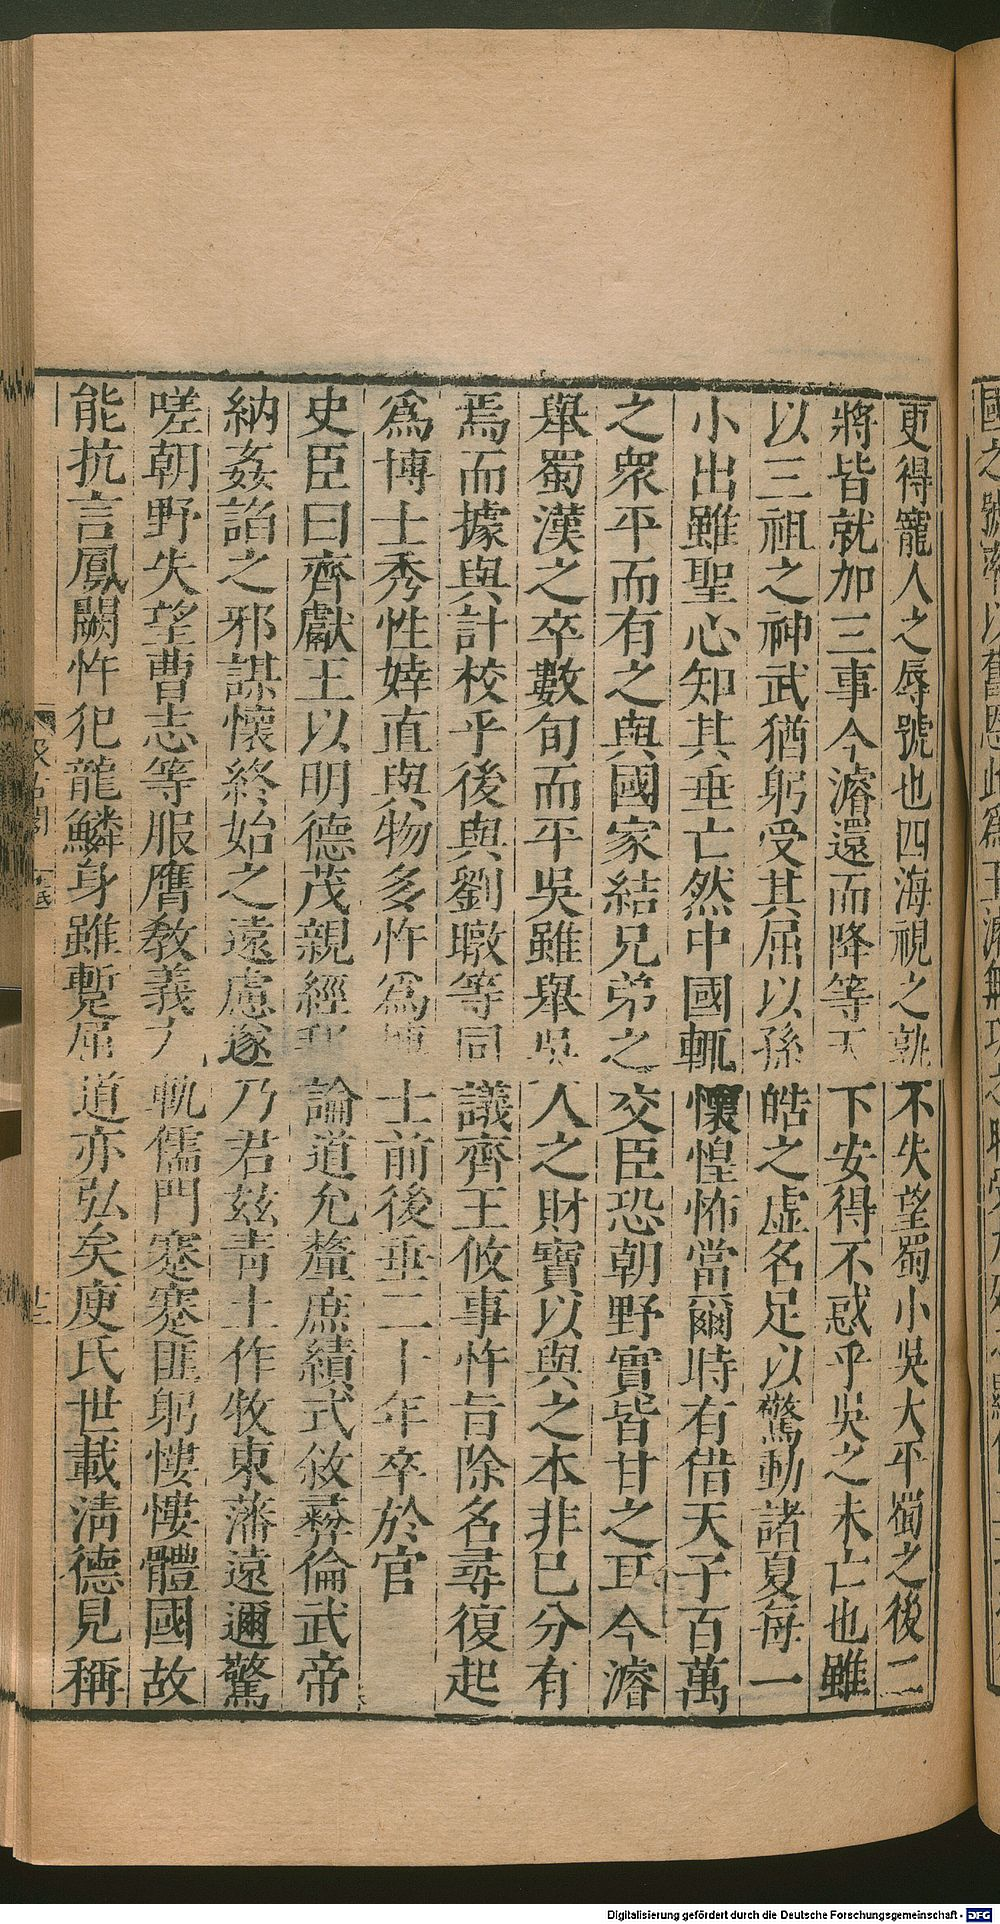 更得寵人之辱號也四海視之孰不失望蜀小吳大平蜀之後二
將皆就加三事今濬還而降等天下安得不惑乎吳之未亡也雖
以三祖之神武猶躬受其屈以孫皓之虛名足以驚動諸夏每一
小出雖聖心知其垂亡然中國輒懷惶怖當爾時有借天子百萬
之衆平而有之與國家結兄弟之交臣恐朝野實皆甘之耳今濬
舉蜀漢之卒數旬而平吳雖舉吳人之財寶以與之本非已分有
焉而據與計校乎後與劉暾等同議齊王攸事忤旨除名尋復起
爲博士秀性婞直與物多忤爲博士前後垂二十年卒於官
史臣曰齊獻王以明德茂親經邦論道允釐庶績式敘彛倫武帝
納姦諂之邪謀懷終始之遠慮遂乃君玆靑土作牧東藩遠邇驚
嗟朝野失望曹志等服膺敎義方軌儒門蹇蹇匪躬慺慺體國故
能抗言鳳闕忤犯龍鱗身雖暫屈道亦弘矣庾氏世載淸德見稱
Digitalisierung gefördert durch die Deutsche Forschungsgemeinschaft - DFG